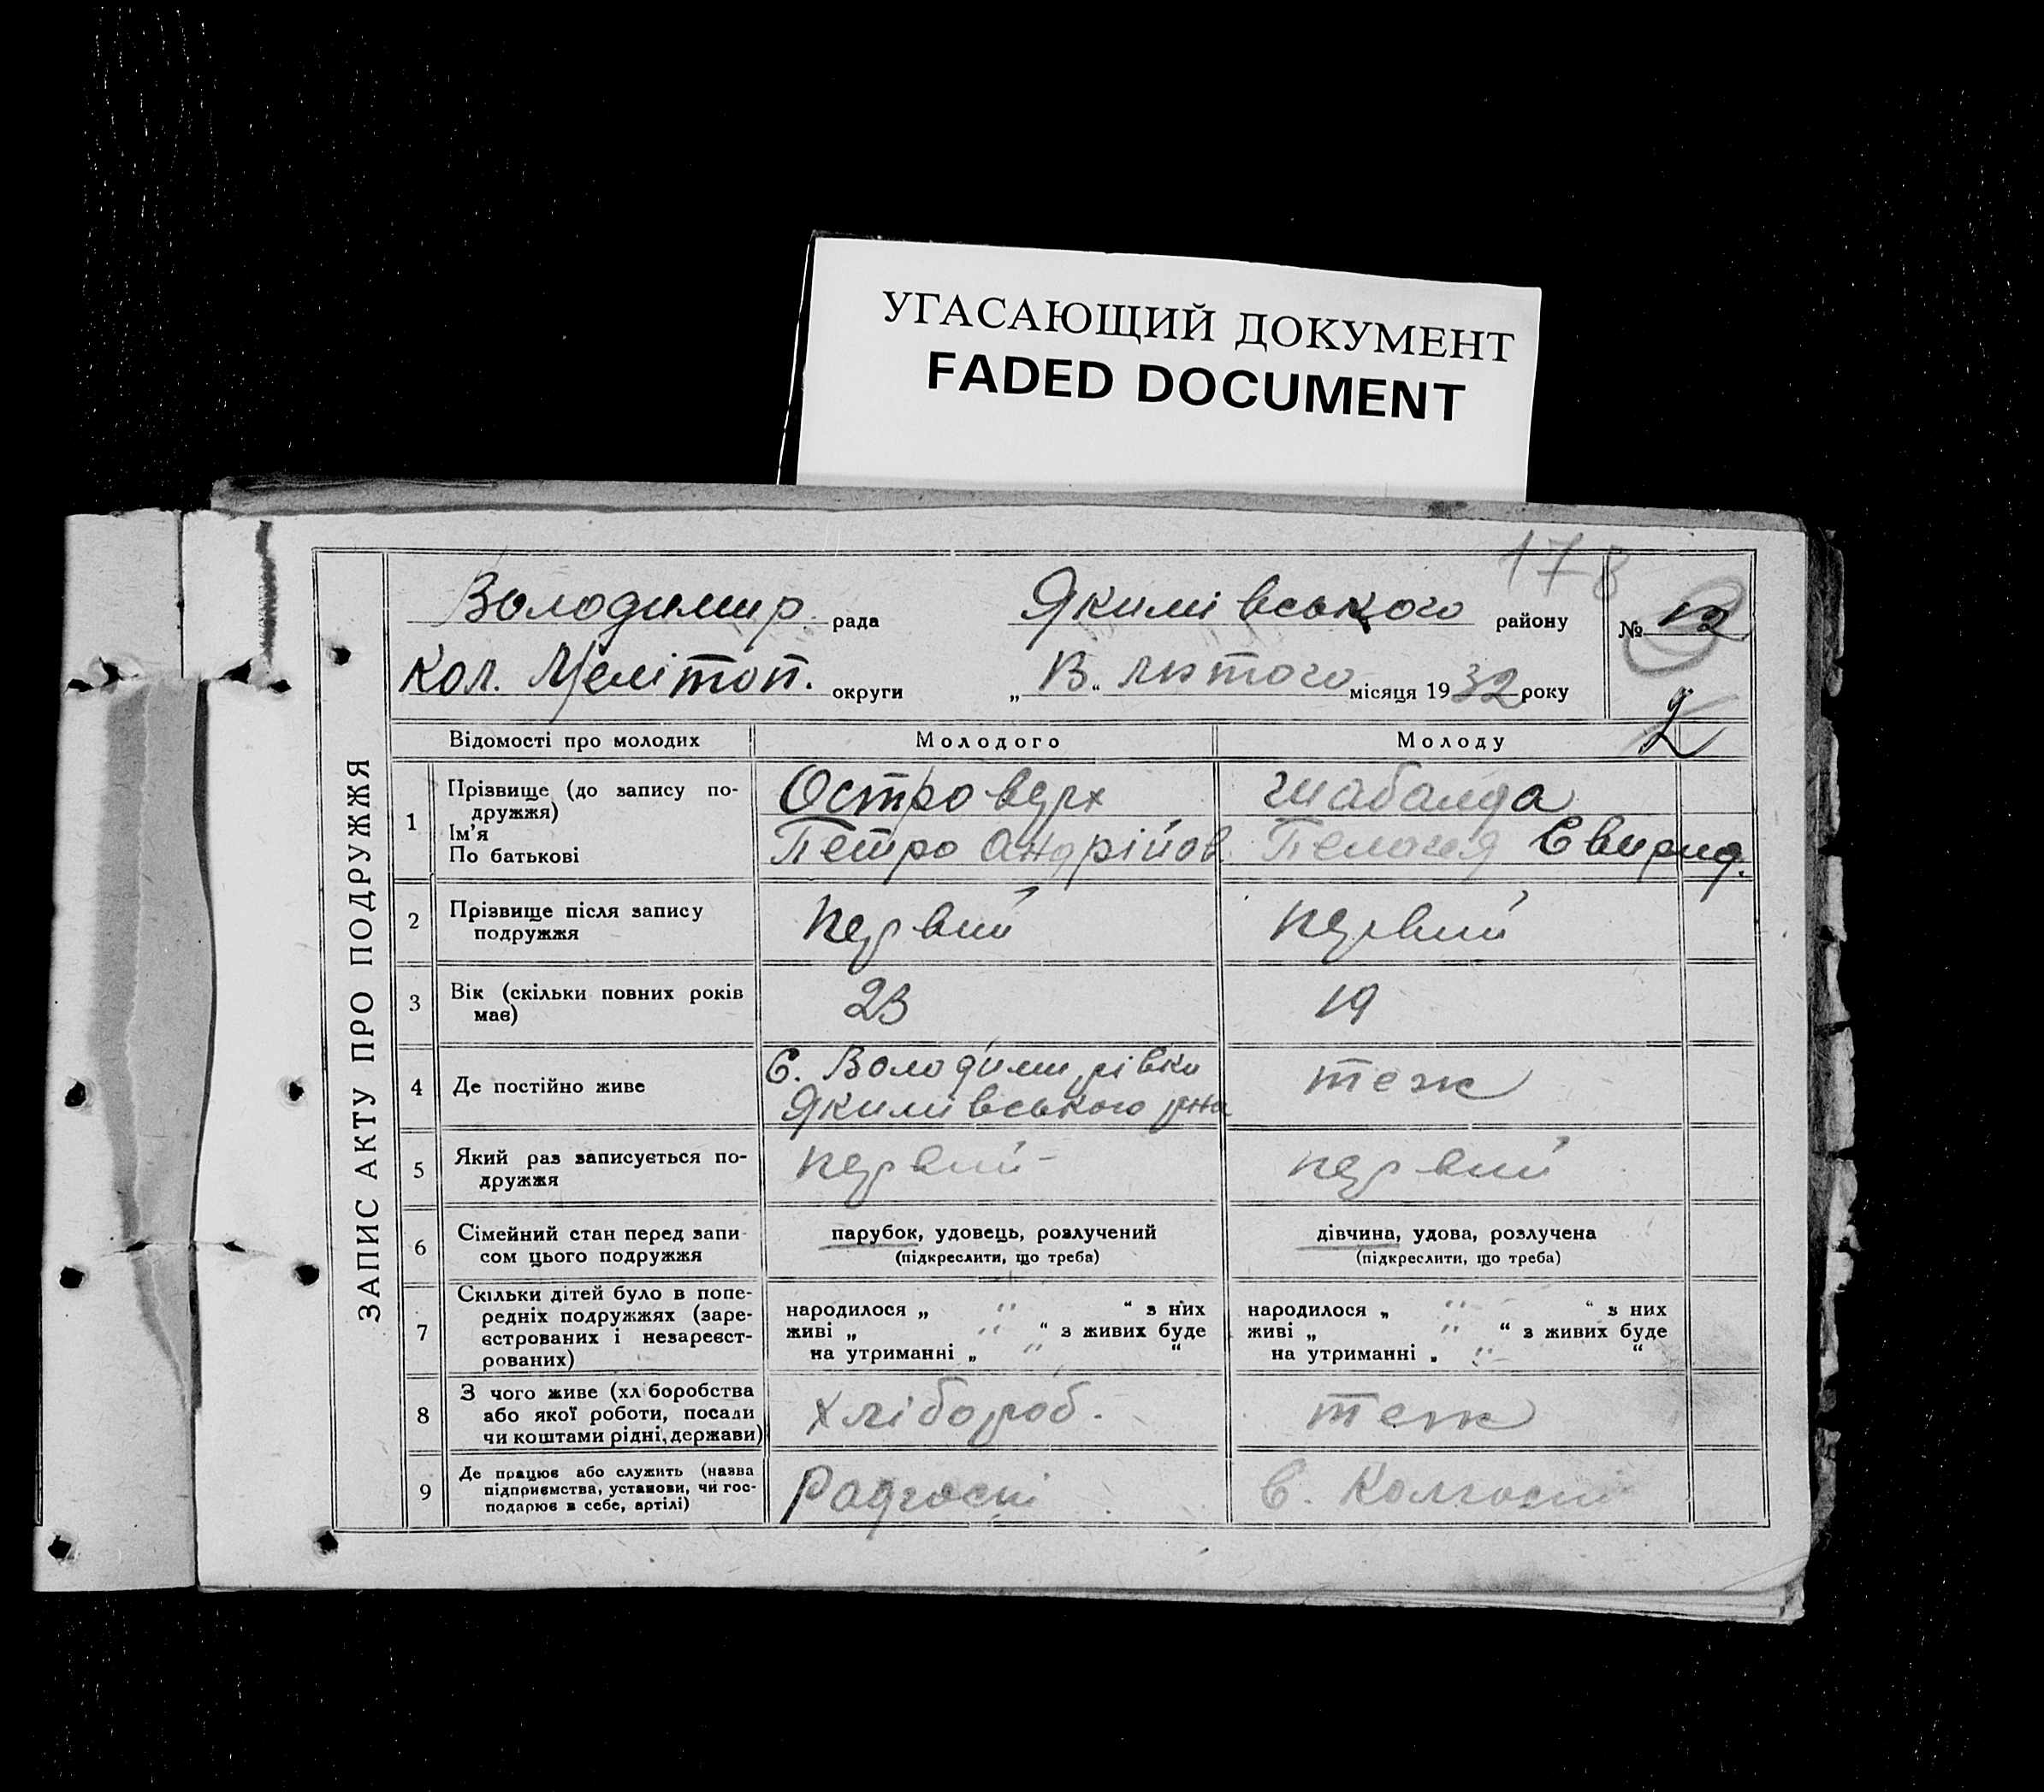 УГАСАЮЩИЙ ДОКУМЕНТ
FADED DOCUMENT
178
ЗАПИС АКТУ ПРО ПОДРУЖЖЯ
Володимир рада Якимівського району № 12
Кол. Мелітоп. округи „13“ лютого місяця 1932 року
2
Відомості про молодих Молодого Молоду
1 Прізвище (до запису по- Островерх Шабалда
дружжя)
Ім'я
По батькові Петро Андрійов Пелагея Свирид.
2 Прізвище після запису первий первий
подружжя
3 Вік (скільки повних років 23 19
має)
4 Де постійно живе С. Володимирівки теж
Якимівського р-на
5 Який раз записується по- первий первий
дружжя
6 Сімейний стан перед запи- парубок, удовець, розлучений дівчина, удова, розлучена
сом цього подружжя (підкреслити, що треба) (підкреслити, що треба)
7 Скільки дітей було в попе-
редніх подружжях (заре- народилося „ " “ з них народилося „ " “ з них
єстрованих і незареєст- живі „ " “ з живих буде живі „ " “ з живих буде
рованих) на утриманні „ " “ на утриманні „ " “
8 З чого живе (хліборобства хлібороб. теж
або якої роботи, посади
чи коштами рідні, держави)
9 Де працює або служить (назва Радгоспі В. Колгоспі
підприємства, установи, чи гос-
подарює в себе, артілі)